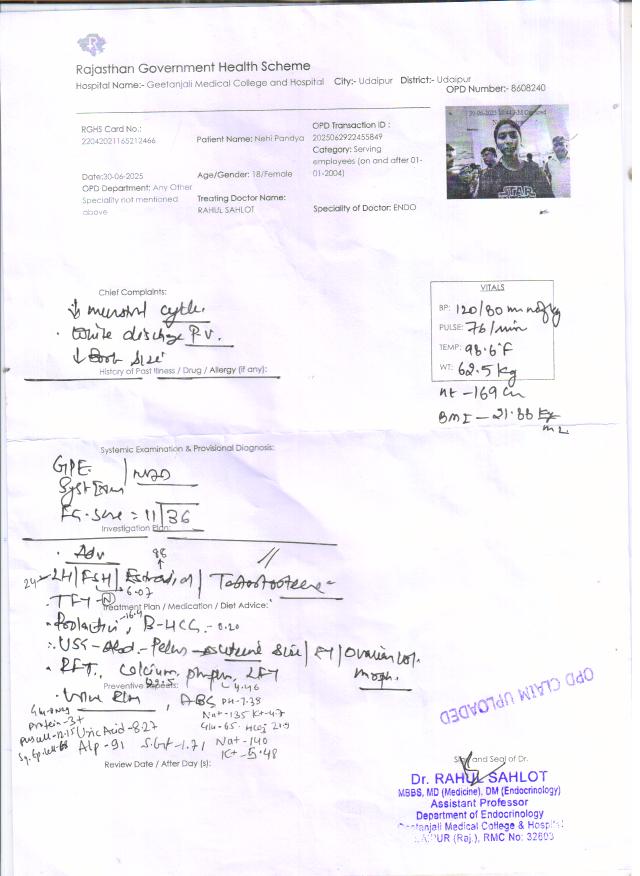 Rajasthan Government Health Scheme
Hospital Name:- Geetanjali Medical College and Hospital City:- Udaipur District:- Udaipur
OPD Number:- 8608240
RGHS Card No.:
22042021165212466
Patient Name: Nehi Pandya
OPD Transaction ID :
2025062922455849
Category: Serving
employees (on and after 01-
01-2004)
Date:30-06-2025
OPD Department: Any Other
Speciality not mentioned
above
Age/Gender: 18/Female
Treating Doctor Name:
RAHUL SAHLOT
Speciality of Doctor: ENDO
STAR
Chief Complaints:
↓ menstrual cycle.
· White discharge P.V.
↓ size
History of Past Illness / Drug / Allergy (if any):
VITALS
BP: 120/80 mmHg
PULSE: 76/min
TEMP: 98.6°F
WT: 62.5 kg
Ht - 169 cm
BMI - 21.88 kg
m2
Systemic Examination & Provisional Diagnosis:
GPE
Syst Exam
NAD
FG. Score = 11/36
Investigation Plan:
· Adv
98
24 LH/FSH/Estradiol/Testosterone
6.07
· TFT - N
Treatment Plan / Medication / Diet Advice:
· Prolactin, B-HCG - 0.20
16.4
· USG - Abd - Pelvis - uterine size / ET / Ovarian vol.
morph.
· RFT, Calcium, phosph, LFT
Preventive Aspects:
4.46
· Urine R/M, ABG PH-7.38
Na+-135 K+-4.7
protein-3+
Uric Acid-8.27
Alp-91
Na+-140
K+-5.48
Review Date / After Day (s):
OPD CLAIM UPLOADED
Sign and Seal of Dr.
Dr. RAHUL SAHLOT
MBBS, MD (Medicine), DM (Endocrinology)
Assistant Professor
Department of Endocrinology
Geetanjali Medical College & Hospital
(Raj.), RMC No: 32693